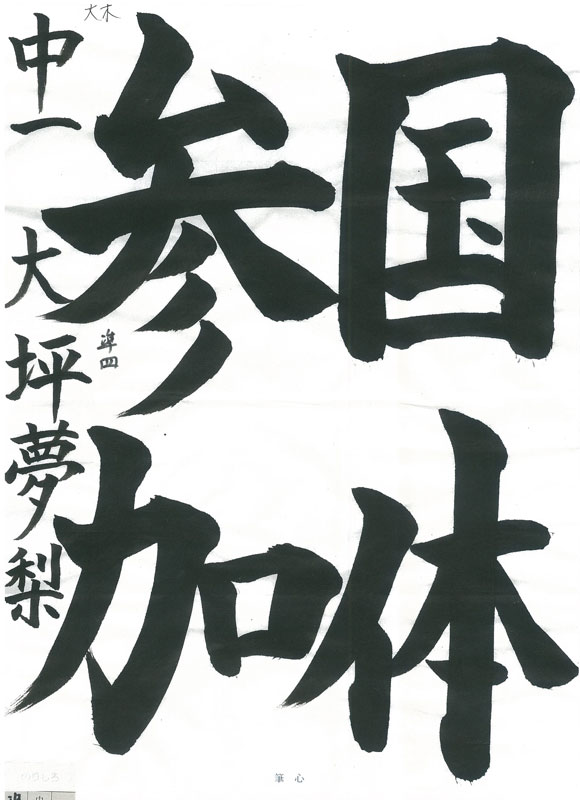 国体
参加
中一 大坪夢梨
準四
大木
のりしろ
筆心